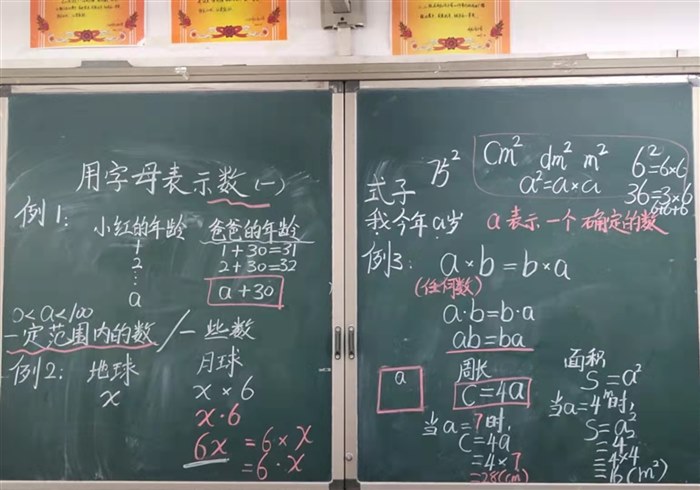 用字母表示数(一)
例1:
小红的年龄 爸爸的年龄
1 1+30=31
2 2+30=32
⋮
a a+30
0<a<100
一定范围内的数/一些数
例2: 地球 月球
x x×6
x·6
6x =6×x
=6·x
cm² dm² m² 6²=6×6
75² a²=a×a 36=3×6
式子
我今年a岁 a表示一个确定的数
例3: a×b=b×a
(任何数)
a·b=b·a
ab=ba
a
周长
C=4a
当a=7时,
C=4a
=4×7
=28(cm)
面积
S=a²
当a=4m时,
S=a²
=4²
=4×4
=16(m²)